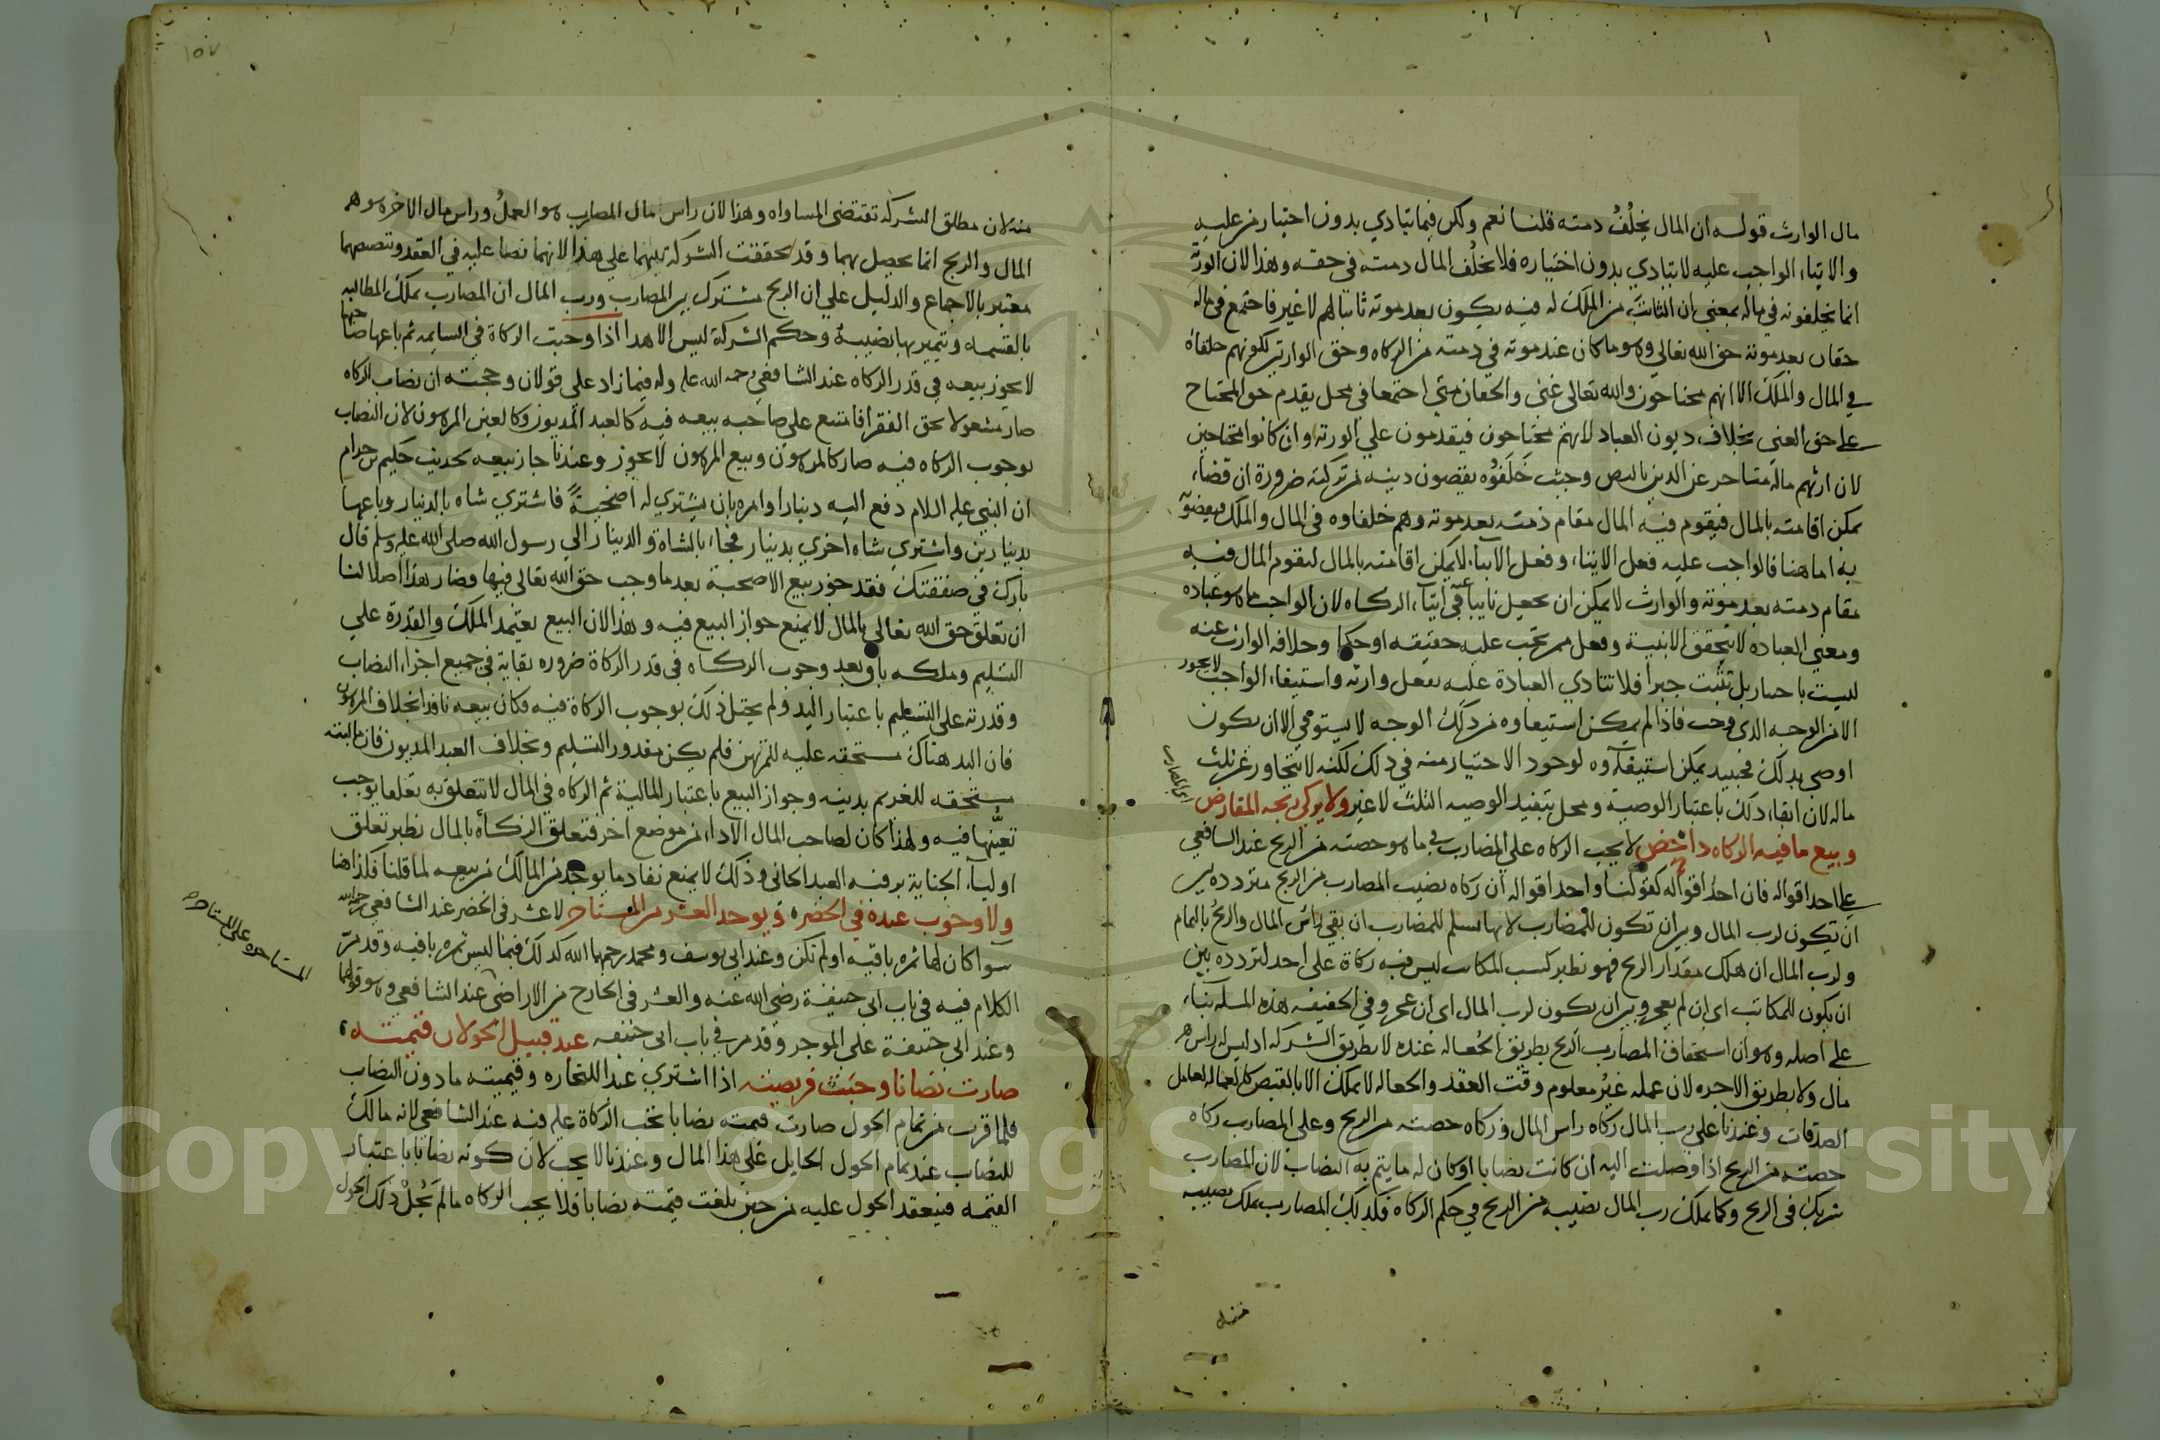 مال الوارث قوله ان المال يخلف ذمته قلنا نعم ولكن فيما يتادي بدون اختيار من عليه
والايتاء الواجب عليه لا يتادي بدون اختياره فلا يخلف المال ذمته في حقه وهذا لان الورثة
انما يخلفونه في ماله بمعني ان الثابت من الملك له فيه يكون بعد موته ثابتا لهم لا غير فاجتمع في ماله
حقان بعد موته حق الله تعالي وهو ما كان عند موته في ذمته من الزكاه وحق الوارثين لكونهم خلفاه
في المال والملك الا انهم محتاجون والله تعالى غني والحقان متى اجتمعا في محل يقدم حق المحتاج
على حق الغني بخلاف ديون العباد لانهم محتاجون فيقدمون علي الورثه وان كانوا محتاجين
لان ارثهم ماله متاخر عن الدين بالنص وحيث خلفوه يقضون دينه من تركته ضرورة ان قضاء
يمكن اقامته بالمال فيقوم فيه المال مقام ذمته بعد موته وهم خلفاوه في المال والملك
به اما هنا فالواجب عليه فعل الايتاء وفعل الايتاء لا يمكن اقامته بالمال ليقوم المال فيه
مقام ذمته بعد موته والوارث لا يمكن ان يجعل نايبا في ايتاء الزكاه لان الواجب ما هو عباده
ومعني العباده لا يتحقق الا بنية وفعل ممن تجب عليه حقيقه او حكما وخلافه الوارث عنه
ليست باختيار بل تثبت جبرا فلا تتادي العبادة عليه بفعل وارثه واستيفاء الواجب لا يجوز
الا من الوجه الذي وجب فاذا لم يمكن استيفاوه من ذلك الوجه لا يستوفي الا ان يكون
اوصى بذلك فحينيذ يمكن استيفاوه لوجود الاختيار منه في ذلك لكنه لا يتجاوز عن ثلث
ماله لان ابقاء ذلك باعتبار الوصية ومحل تنفيذ الوصيه الثلث لا غير ولا يزكي ربحه المقارض
اي المضارب
وبيع ما فيه الزكاه لا تجب الزكاه علي المضارب في ما هو حصته من الربح عند الشافعي
على احد اقواله فان احد اقواله كقولنا واحد اقواله ان زكاه نصيب المضارب من الربح متردده بين
ان تكون لرب المال وبين ان تكون للمضارب لانها تسلم للمضارب ان بقي راس المال والربح بالتمام
ولرب المال ان هلك مقدار الربح فهو نظير كسب المكاتب ليس فيه زكاة على احد لتردده بين
ان يكون للمكاتب اي ان لم يعجز وبين ان يكون لرب المال اي ان عجز وفي الحقيقه هذه المسله بناء
على اصله وهو ان استحقاق المضارب الربح بطريق الجعاله عنده لا بطريق الشركه اذ ليس له راس
مال ولا بطريق الاجره لان عمله غير معلوم وقت العقد والجعاله لا تملك الا بالقبض كالعماله لعامل
الصدقات وعندنا علي رب المال زكاه راس المال وزكاه حصته من الربح وعلى المضارب زكاه
حصته من الربح اذا وصلت اليه ان كانت نصابا او كان له ما يتم به النصاب لان المضارب
شريك في الربح وكما يملك رب المال نصيبه من الربح في حكم الزكاه فكذلك المضارب يملك نصيبه
منه لان
١٥٧
منه لان مطلق الشركه تقتضي المساواه وهذا لان راس مال المضارب هو العمل وراس مال الاخر هو
المال والربح انما يحصل بهما وقد تحققت الشركة بينهما علي هذا لانهما نصا عليه في العقد وتنصيصهما
معتبر بالاجماع والدليل علي ان الربح مشترك بين المضارب ورب المال ان المضارب يملك المطالبه
بالقسمه وتميز بها نصيبه وحكم الشركة ليس الا هذا اذا وجبت الزكاة في السايمه ثم باعها صاحبها
لا يجوز بيعه في قدر الزكاه عند الشافعي رحمه الله عليه وله فيما زاد علي قولان وحجته ان نصاب الزكاه
صار مشغولا بحق الفقرا فامتنع علي صاحبه بيعه فيه كالعبد المديون وكالعين المرهون لان النصاب
بوجوب الزكاه فيه صار كالمرهون وبيع المرهون لا يجوز وعندنا جاز بيعه لحديث حكيم بن حزام
ان النبي عليه السلام دفع اليه دينارا وامره بان يشتري له اضحية فاشتري شاه بالدينار وباعها
بدينارين واشتري شاه اخري بدينار فجاء بالشاه والدينار الي رسول الله صلى الله عليه وسلم قال
بارك في صفقتك فقد جوز بيع الاضحية بعد ما وجب حق الله تعالى فيها وصار هذا اصلا لنا
ان تعلق حق الله تعالي بالمال لا يمنع جواز البيع فيه وهذا لان البيع يعتمد الملك والقدرة علي
التسليم وملكه باق بعد وجوب الزكاه في قدر الزكاة ضروره بقايه في جميع اجزاء النصاب
وقدرته على التسليم باعتبار اليد ولم يختل ذلك بوجوب الزكاة فيه فكان بيعه نافذا بخلاف المرهون
فان اليد هناك مستحقه عليه للمرتهن فلم يكن مقدور التسليم وبخلاف العبد المديون فان ماليته
مستحقه للغريم بدينه وجواز البيع باعتبار المالية ثم الزكاه في المال لا تتعلق به تعلقا يوجب
تعينها فيه ولهذا كان لصاحب المال الاداء من موضع اخر فتعلق الزكاة بالمال نظير تعلق
اولياء الجناية برقبه العبد الجاني وذلك لا يمنع نفاد ما يوجد من المالك من بيعه لما قلنا فكذا هنا
ولا وجوب عنده في الخضره ويوجد العشر من المستاجر لا عشر في الخضر عند الشافعي رحمه الله
سواء كان لها ثمره باقيه او لم تكن وعند ابي يوسف ومحمد رحمهما الله كذلك فيما ليس ثمره باقيه وقد مر
الكلام فيه في باب ابي حنيفة رضي الله عنه والعشر في الخارج من الاراضي عند الشافعي وهو قولهما
المستاجره على المستاجر
وعند ابي حنيفة على الموجر وقد مر في باب ابي حنيفه عبد قبيل الحولان قيمته
صارت نصابا وجبت فريضته اذا اشتري عبدا للتجاره وقيمته ما دون النصاب
فلما قرب من تمام الحول صارت قيمته نصابا تجب الزكاة عليه فيه عند الشافعي لانه مالك
للنصاب عند تمام الحول الحايل علي هذا المال وعندنا لا يجب لان كونه نصابا باعتبار
القيمه فينعقد الحول عليه من حين بلغت قيمته نصابا فلا يجب الزكاه ما لم يحل ذلك الحول
Copyright © King Saud University